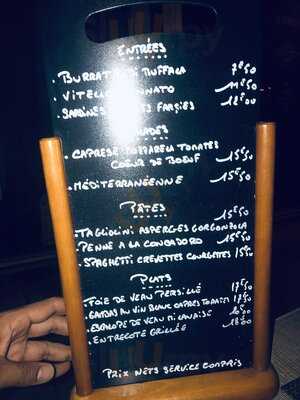 ENTRÉES
. BURRAT DI BUFFALA 7€50
. VITELLO TONNATO 11€50
. SARDINES FARÇIES 12€00
SALADES
. CAPRESE MOZZARELLA TOMATES
COEUR DE BOEUF 15€50
. MÉDITERRANÉENNE 15€50
PÂTES
15€50
. TAGLIOLINI ASPERGES GORGONZOLA
. PENNE A LA 15€50
. SPAGHETTI CREVETTES COURGETTES 15€50
PLATS
. FOIE DE VEAU PERSILLÉ 17€50
. GAMBAS AU VIN BLANC CAPRES TOMATES 17€50
. ESCALOPE DE VEAU MILANAISE
. ENTRECOTE GRILLÉE 18€00
PRIX NETS SERVICE COMPRIS